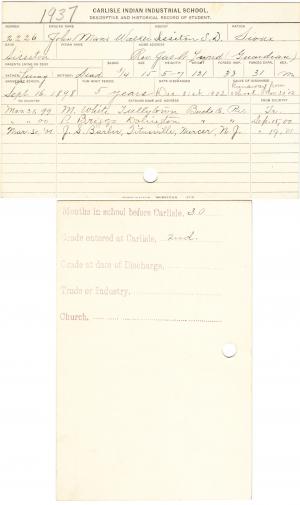 1937
CARLISLE INDIAN INDUSTRIAL SCHOOL.
DESCRIPTIVE AND HISTORICAL RECORD OF STUDENT.
NUMBER ENGLISH NAME AGENCY NATION
2226 John Mans Walker Sisseton S.D. Sioux
BAND INDIAN NAME HOME ADDRESS
Sisseton Rev. Jas. (Guardian)
PARENTS LIVING OR DEAD BLOOD AGE HEIGHT WEIGHT FORCED INSP. FORCED EXPR. SEX
FATHER MOTHER Dead 1/4 15 5-7 131 33 31 M
ARRIVED AT SCHOOL FOR WHAT PERIOD DATE DISCHARGED CAUSE OF DISCHARGE
Sept. 16, 1898 5 years Dec 31st 1902 Runaway from
TO COUNTRY PATRONS NAME AND ADDRESS FROM COUNTRY
Mar. 25, 99 M. White Tullytown Bucks Co. Pa.
" " 00 P. Briggs Dolington " " Sep. 15, 00
Mar. 30, 01 J. S. Barber, Titusville, Mercer, N. J.
Months in school before Carlisle, 30
Grade entered at Carlisle, 2nd.
Grade at date of Discharge,
Trade or Industry,
Church,